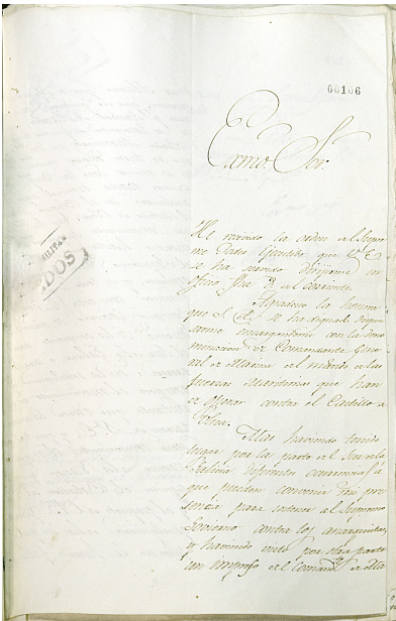 00106
Exmo. Sor.
He recivido la orden del Supre
mo Poder Ejecutivo que V. E.
se ha servido dirijirme en
oficio fha 3 del corriente.
Agradezco la honra
que el se ha dignado dispen
sarme encargandome con la deno
minacion de Comandante Gene
ral de Marina el mando de las
fuerzas Maritimas que han
de operar contra el Castillo de
Ulua.
Mas haviendo tenido
lugar por la parte del Sur de la
Galicia
que puedan convenir mi pre
sencia para sostener al Supremo
Govierno contra los anarquistas,
y haviendo visto por otra parte
un del Comand. de Ma
MILITAR
DOS